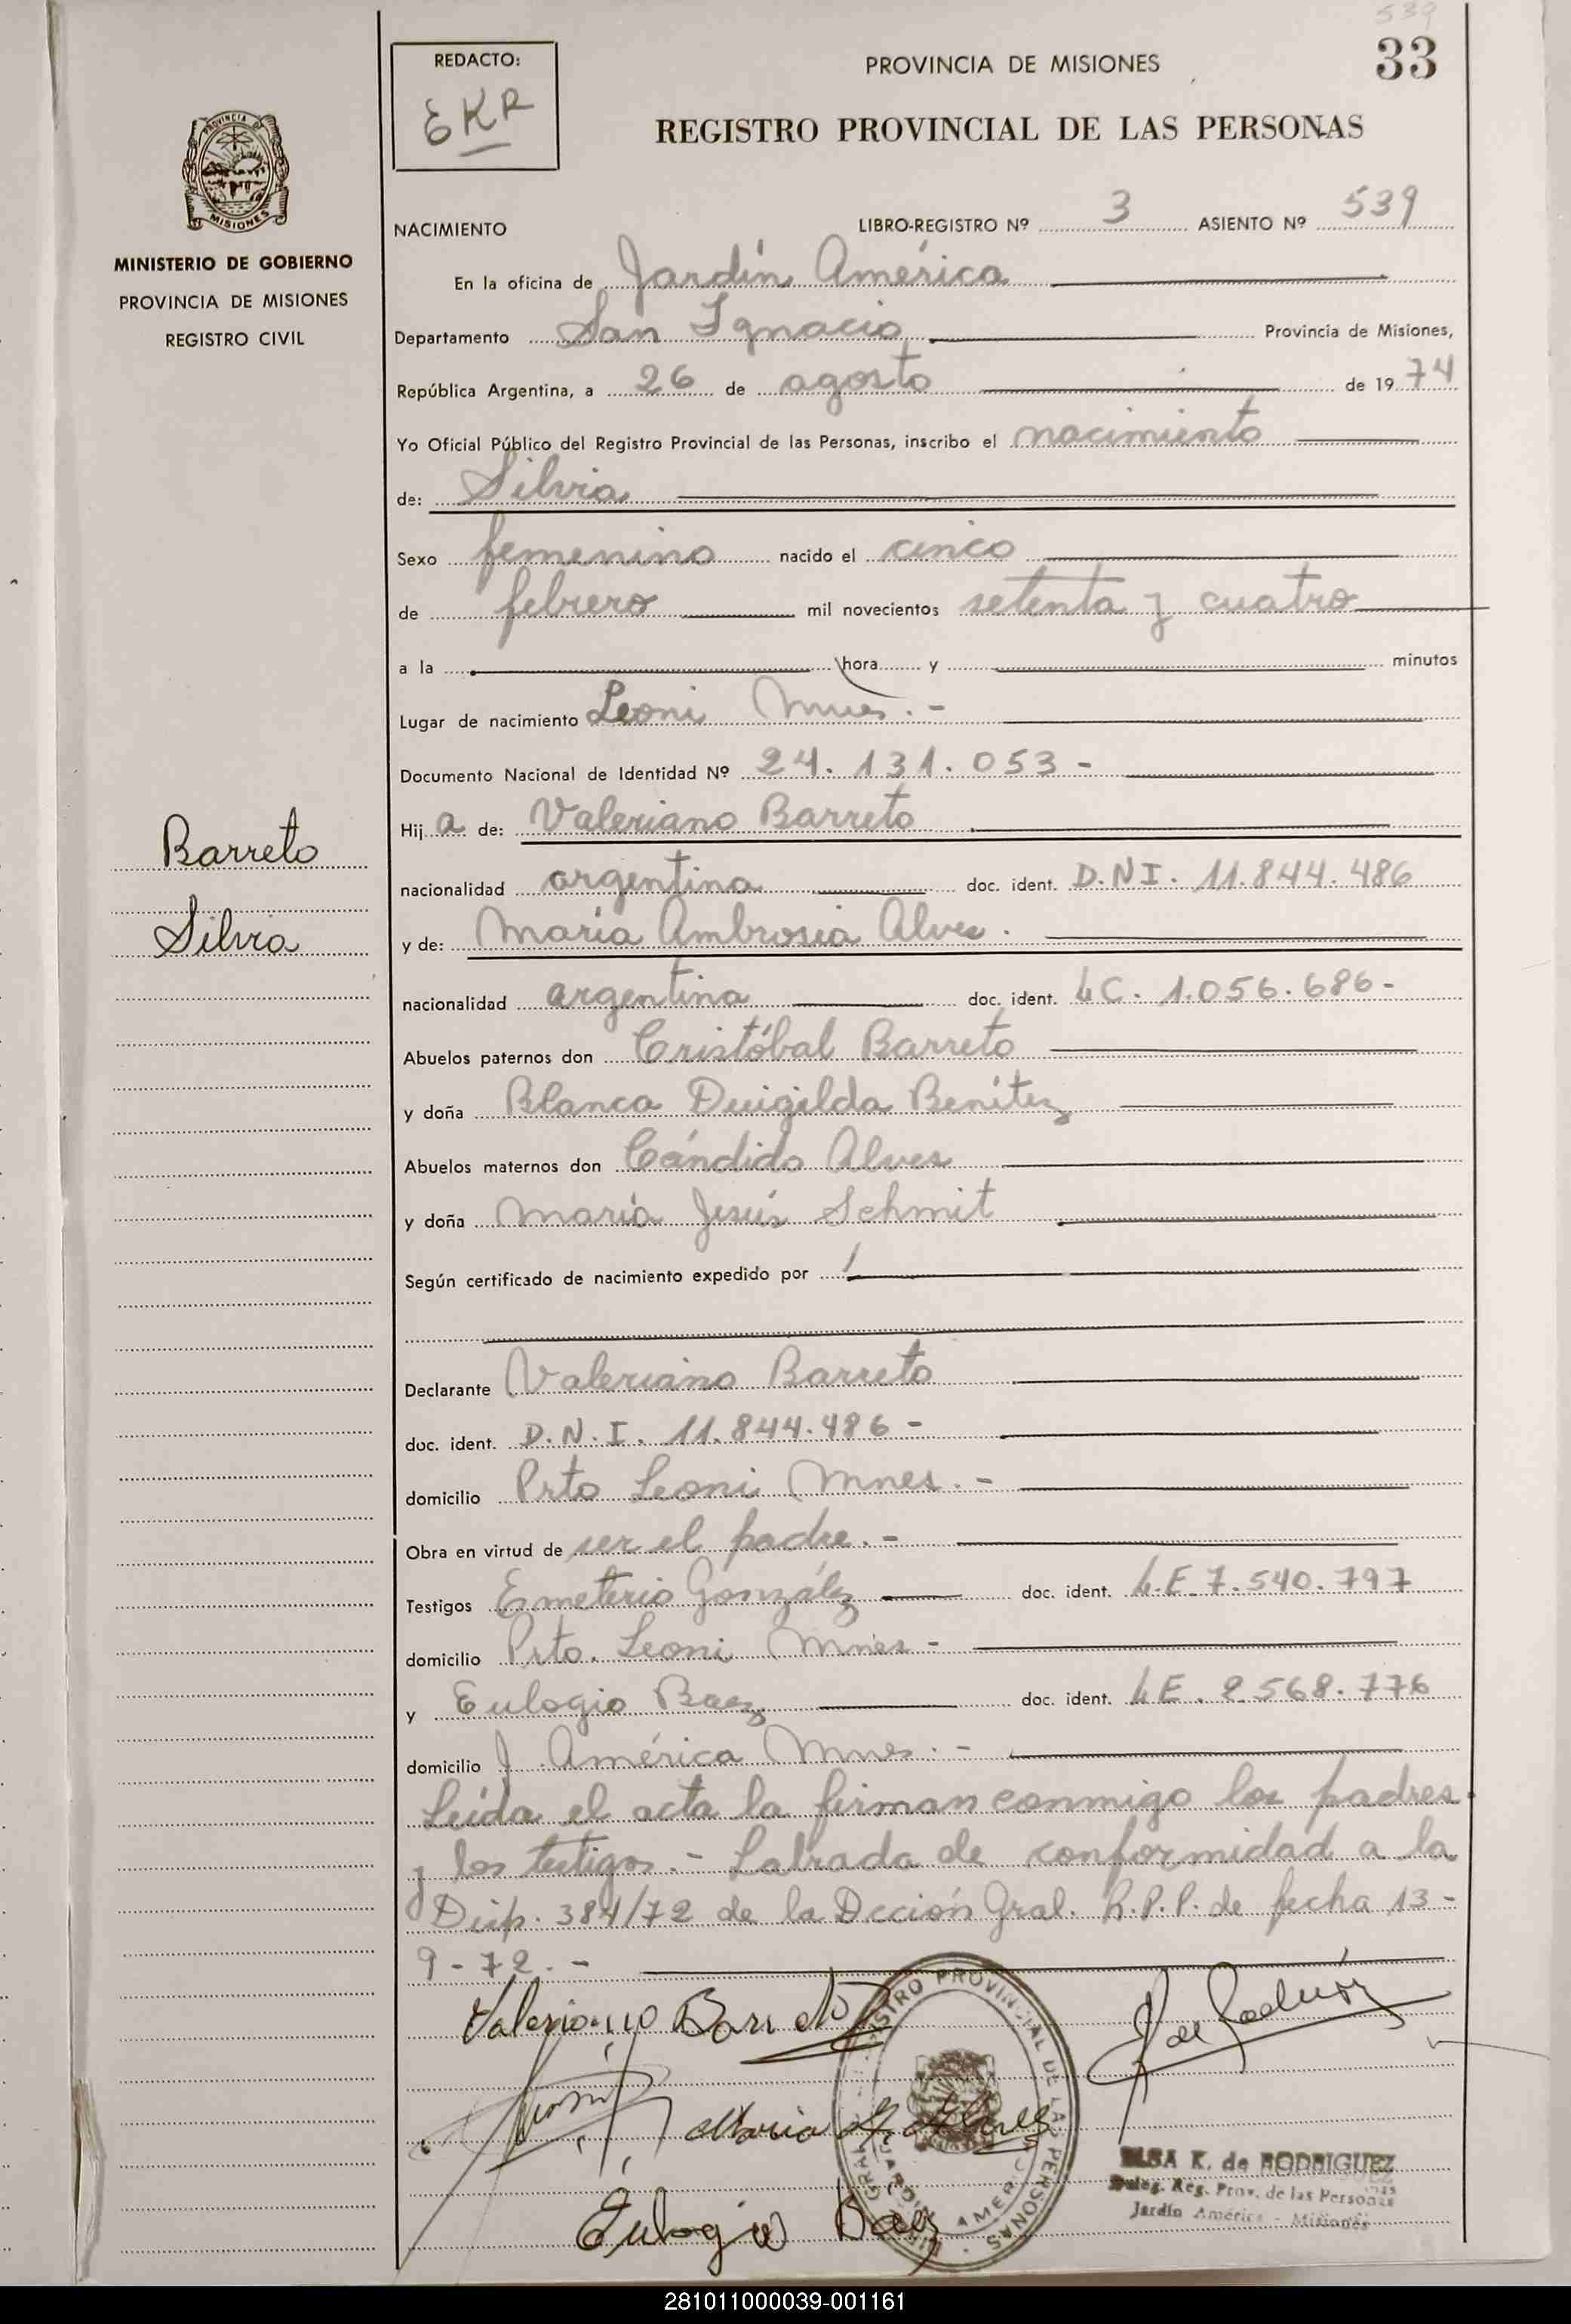 539
33
REDACTO:
EKR
PROVINCIA DE MISIONES
REGISTRO PROVINCIAL DE LAS PERSONAS
PROVINCIA DE
MISIONES
MINISTERIO DE GOBIERNO
PROVINCIA DE MISIONES
REGISTRO CIVIL
NACIMIENTO LIBRO-REGISTRO Nº 3 ASIENTO Nº 539
En la oficina de Jardín América
Departamento San Ignacio Provincia de Misiones,
República Argentina, a 26 de agosto de 1974
Yo Oficial Público del Registro Provincial de las Personas, inscribo el nacimiento
de: Silvia
Sexo femenino nacido el cinco
de febrero mil novecientos setenta y cuatro
a la hora y minutos
Lugar de nacimiento Leoni Mnes. -
Documento Nacional de Identidad Nº 24.131.053 -
Hija de: Valeriano Barreto
Barreto
Silvia
nacionalidad argentina doc. ident. D.N.I. 11.844.486
y de: María Ambrosia Alves.
nacionalidad argentina doc. ident. L.C. 1.056.686-
Abuelos paternos don Cristóbal Barreto
y doña Blanca Benítez
Abuelos maternos don Cándido Alves
y doña María Jesús Schmit
Según certificado de nacimiento expedido por
Declarante Valeriano Barreto
doc. ident. D.N.I. 11.844.486 -
domicilio Prto Leoni Mnes. -
Obra en virtud de ser el padre. -
Testigos Emeterio González doc. ident. L.E. 7.540.797
domicilio Prto. Leoni Mnes -
y Eulogio Baez doc. ident. L.E. 2.568.776
domicilio J. América Mnes. -
Leída el acta la firman conmigo los padres
y los testigos. - Labrada de conformidad a la
Disp. 384/72 de la Dcción Gral. R.P.P. de fecha 13-
9-72. -
Valeriano Barreto
María A. Alves
Eulogio Baez
REGISTRO PROVINCIAL DE LAS PERSONAS
ELSA K. de RODRIGUEZ
Deleg. Reg. Prov. de las Personas
Jardín América - Misiones
281011000039-001161